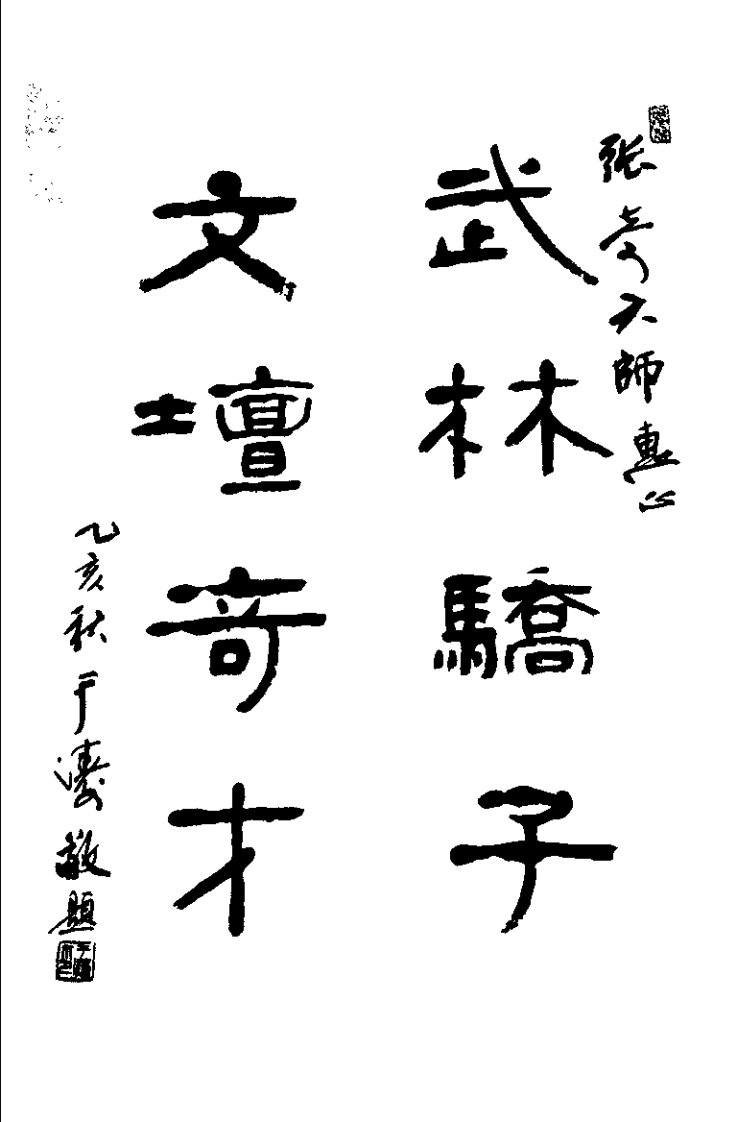 張奇大師惠正
武林驕子
文壇奇才
乙亥秋于濤敬題